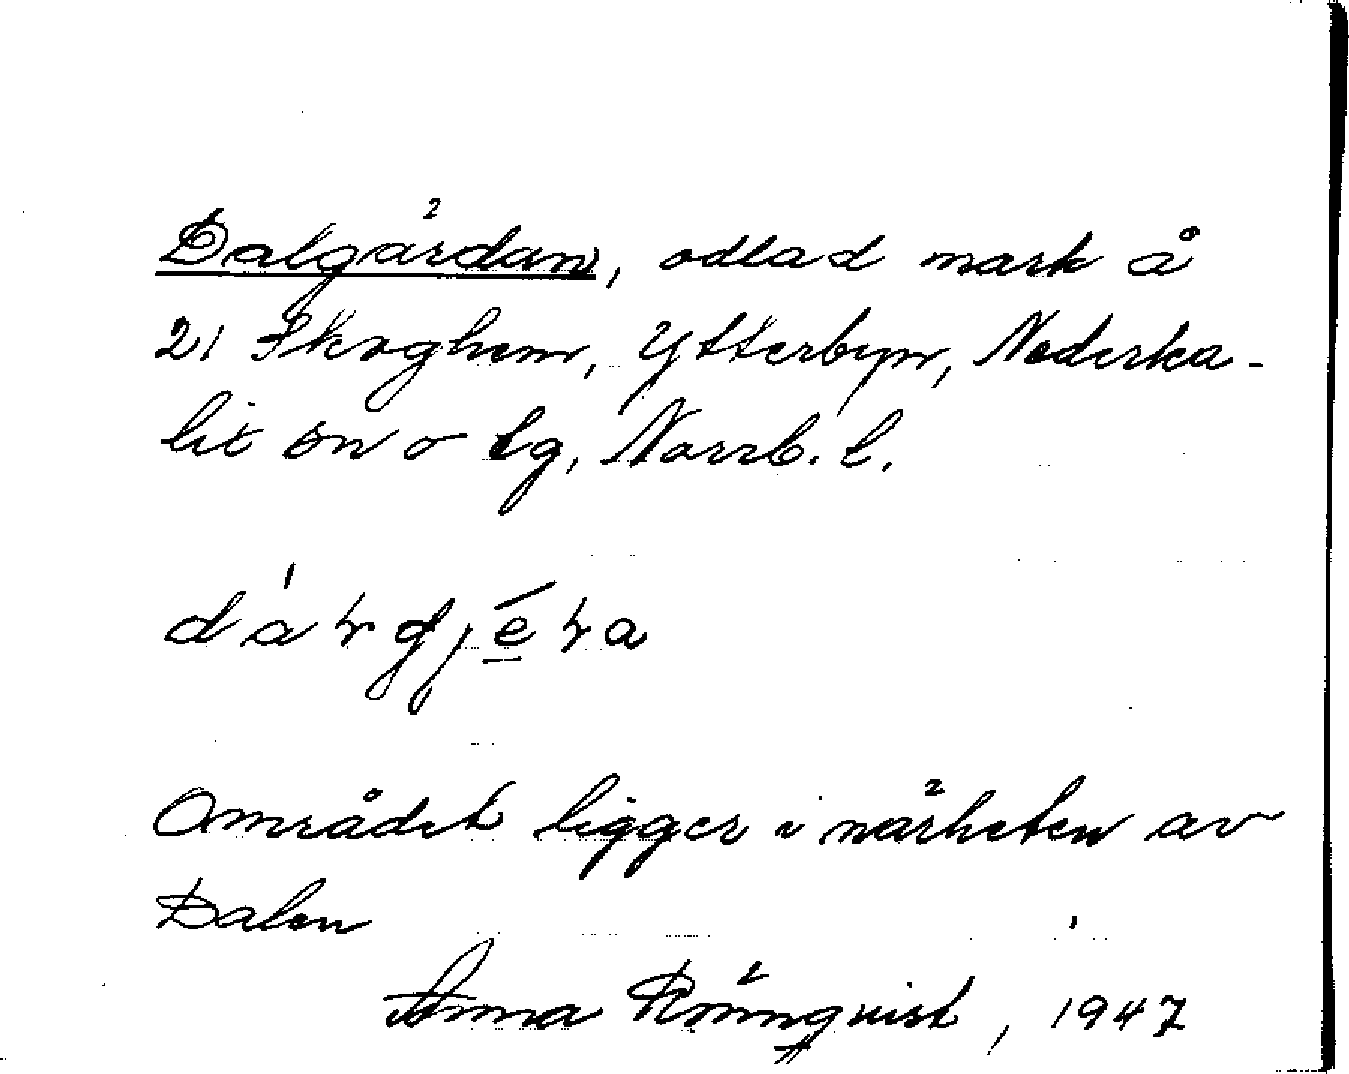 Dalgärdan, odlad mark å
21 Skoghem, Ytterbyn, Nederka-
lix sn o tg, Norrb. l.
Området ligger i närheten av
Dalen
Anna Rönnqvist, 1947